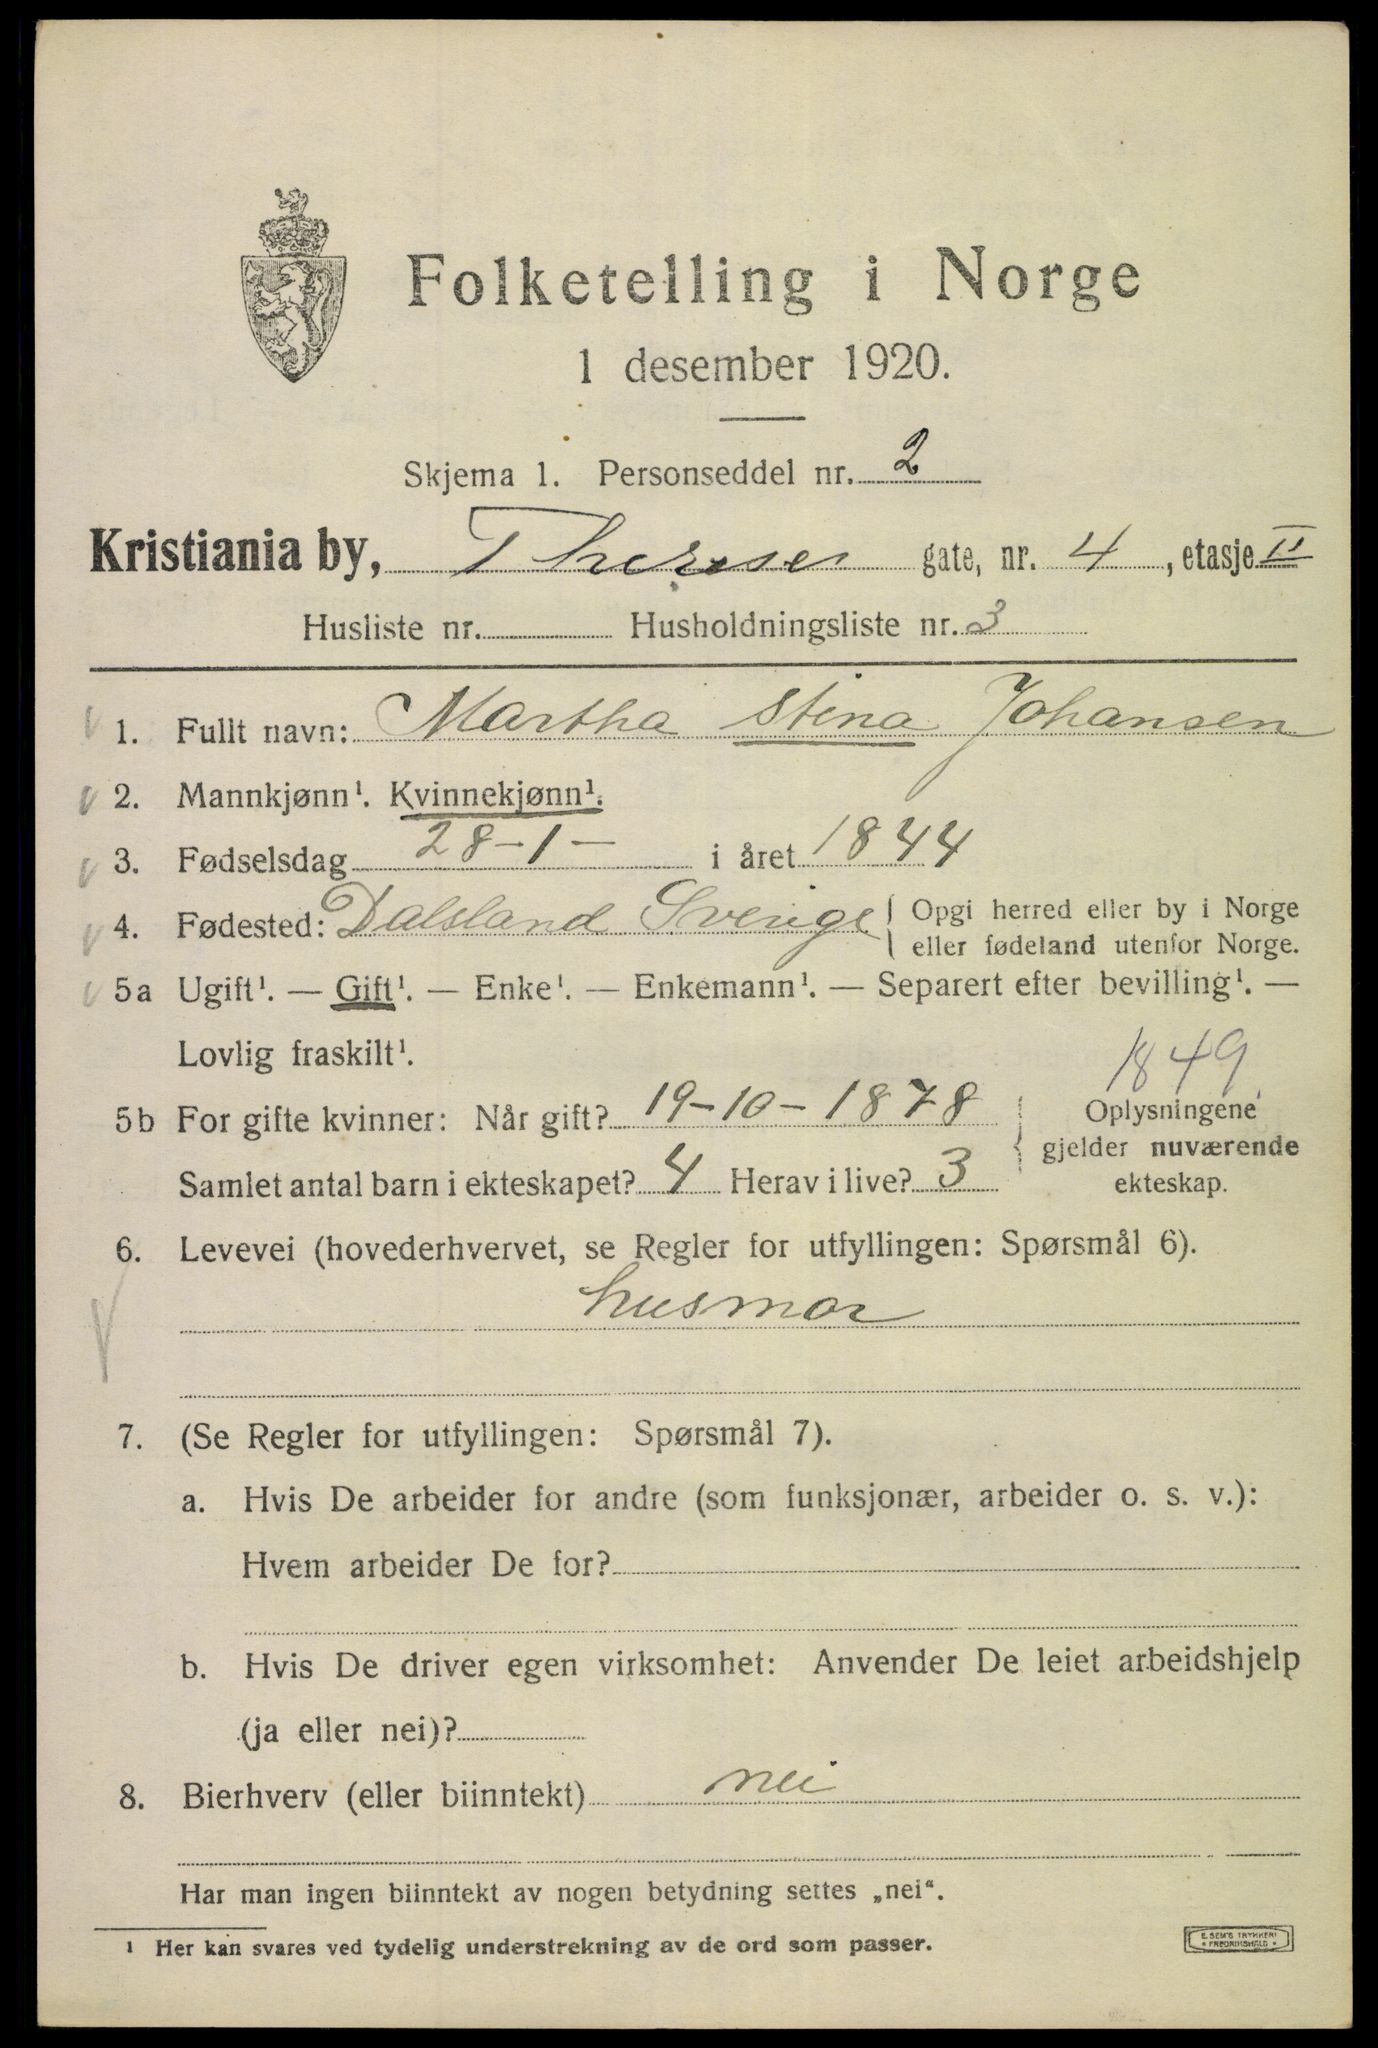 Folketelling i Norge
1 desember 1920.
Skjema 1. Personseddel nr. 2
Kristiania by, Thereses gate, nr. 4, etasje II
Husliste nr. Husholdningsliste nr. 3
1. Fullt navn: Martha Stina Johansen
2. Mannkjønn¹. Kvinnekjønn¹.
3. Fødselsdag 28-1- i året 1844
4. Fødested: Dalsland Sverige { Opgi herred eller by i Norge
eller fødeland utenfor Norge.
5a Ugift¹. — Gift¹. — Enke¹. — Enkemann¹. — Separert efter bevilling¹. —
Lovlig fraskilt¹.
1849
5b For gifte kvinner: Når gift? 19-10-1878 } Oplysningene
gjelder nuværende
Samlet antal barn i ekteskapet? 4 Herav i live? 3 ekteskap.
6. Levevei (hovederhvervet, se Regler for utfyllingen: Spørsmål 6).
husmor
7. (Se Regler for utfyllingen: Spørsmål 7).
a. Hvis De arbeider for andre (som funksjonær, arbeider o. s. v.):
Hvem arbeider De for?
b. Hvis De driver egen virksomhet: Anvender De leiet arbeidshjelp
(ja eller nei)?
8. Bierhverv (eller biinntekt) nei
Har man ingen biinntekt av nogen betydning settes „nei“.
¹ Her kan svares ved tydelig understrekning av de ord som passer.
E. SEM'S TRYKKERI
• FREDRIKSHALD •